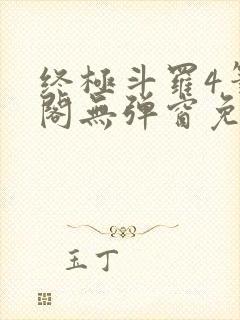 终极斗罗4
阁无弹窗免
玉丁